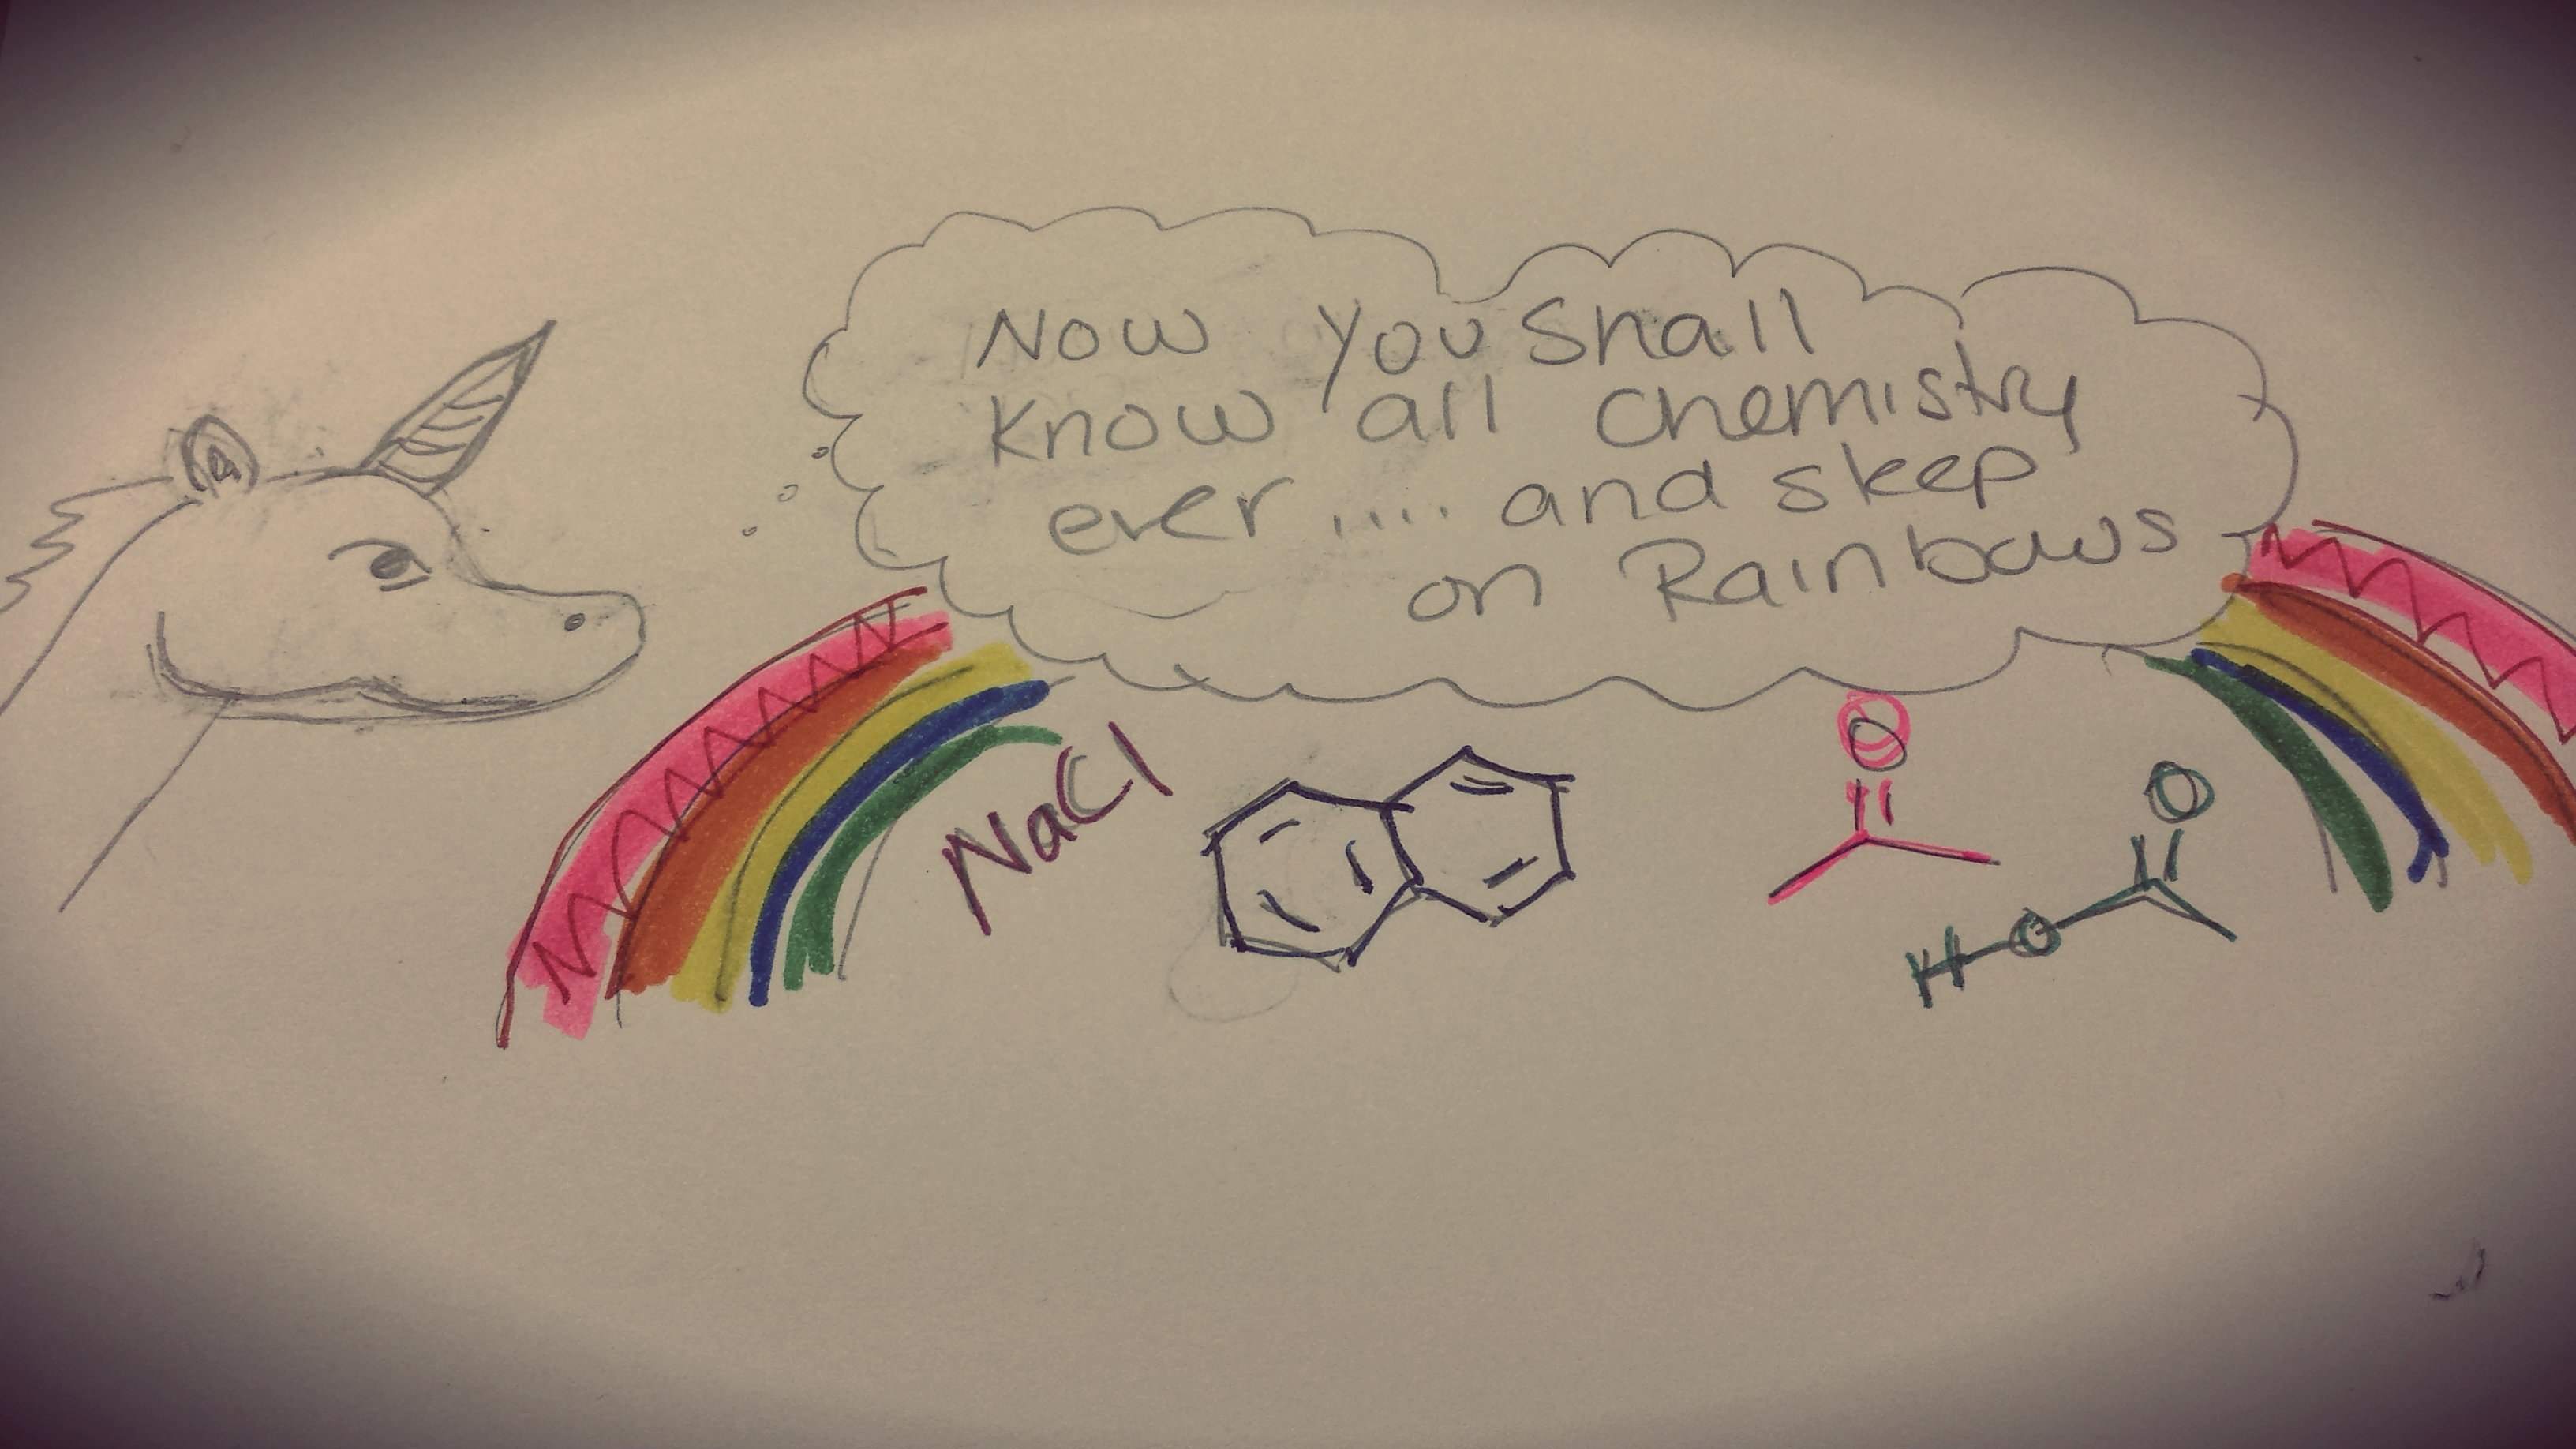 Now you Shall
Know all Chemistry
ever .... and sleep
on Rainbows
NaCl
O
O
H-O